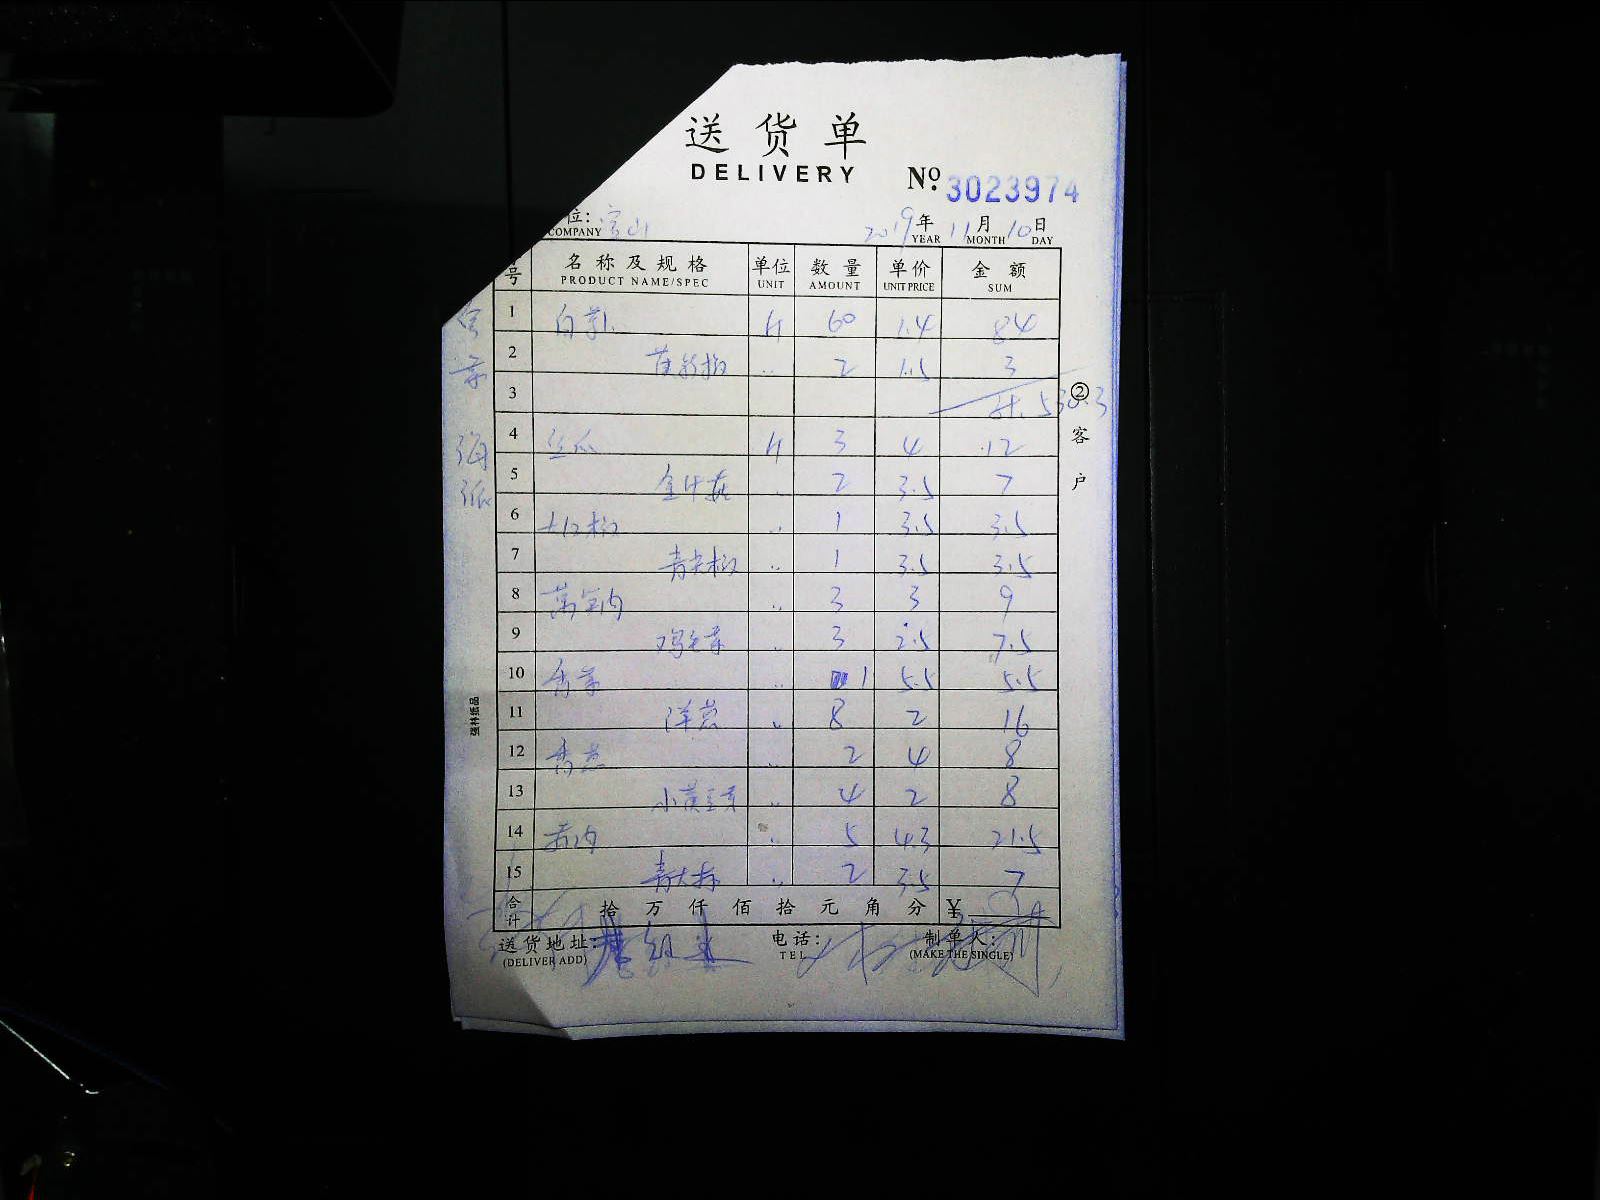 送货单
DELIVERY
No. 3023974
位: 宝山 2019年11月10日
COMPANY YEAR MONTH DAY
号 名称及规格 单位 数量 单价 金额
PRODUCT NAME/SPEC UNIT AMOUNT UNIT PRICE SUM
1 斤 60 1.4 84
2 2 1.5 3
3 计. 530.3
4 丝瓜 斤 3 4 12
5 金针菇 2 3.5 7
6 大红椒 1 3.5 3.5
7 青尖椒 1 3.5 3.5
8 莴笋肉 3 3 9
9 鸡毛菜 3 2.5 7.5
10 香菜 1 5.5 5.5
11 洋葱 8 2 16
12 香葱 2 4 8
13 小黄豆芽 4 2 8
14 5 4.3 21.5
15 青大椒 2 3.5 7
合计 拾 万 仟 佰 拾 元 角 分 ¥
送货地址: 电话: 制单人:
(DELIVER ADD) TEL (MAKE THE SINGLE)
②客户
海派
强林纸品